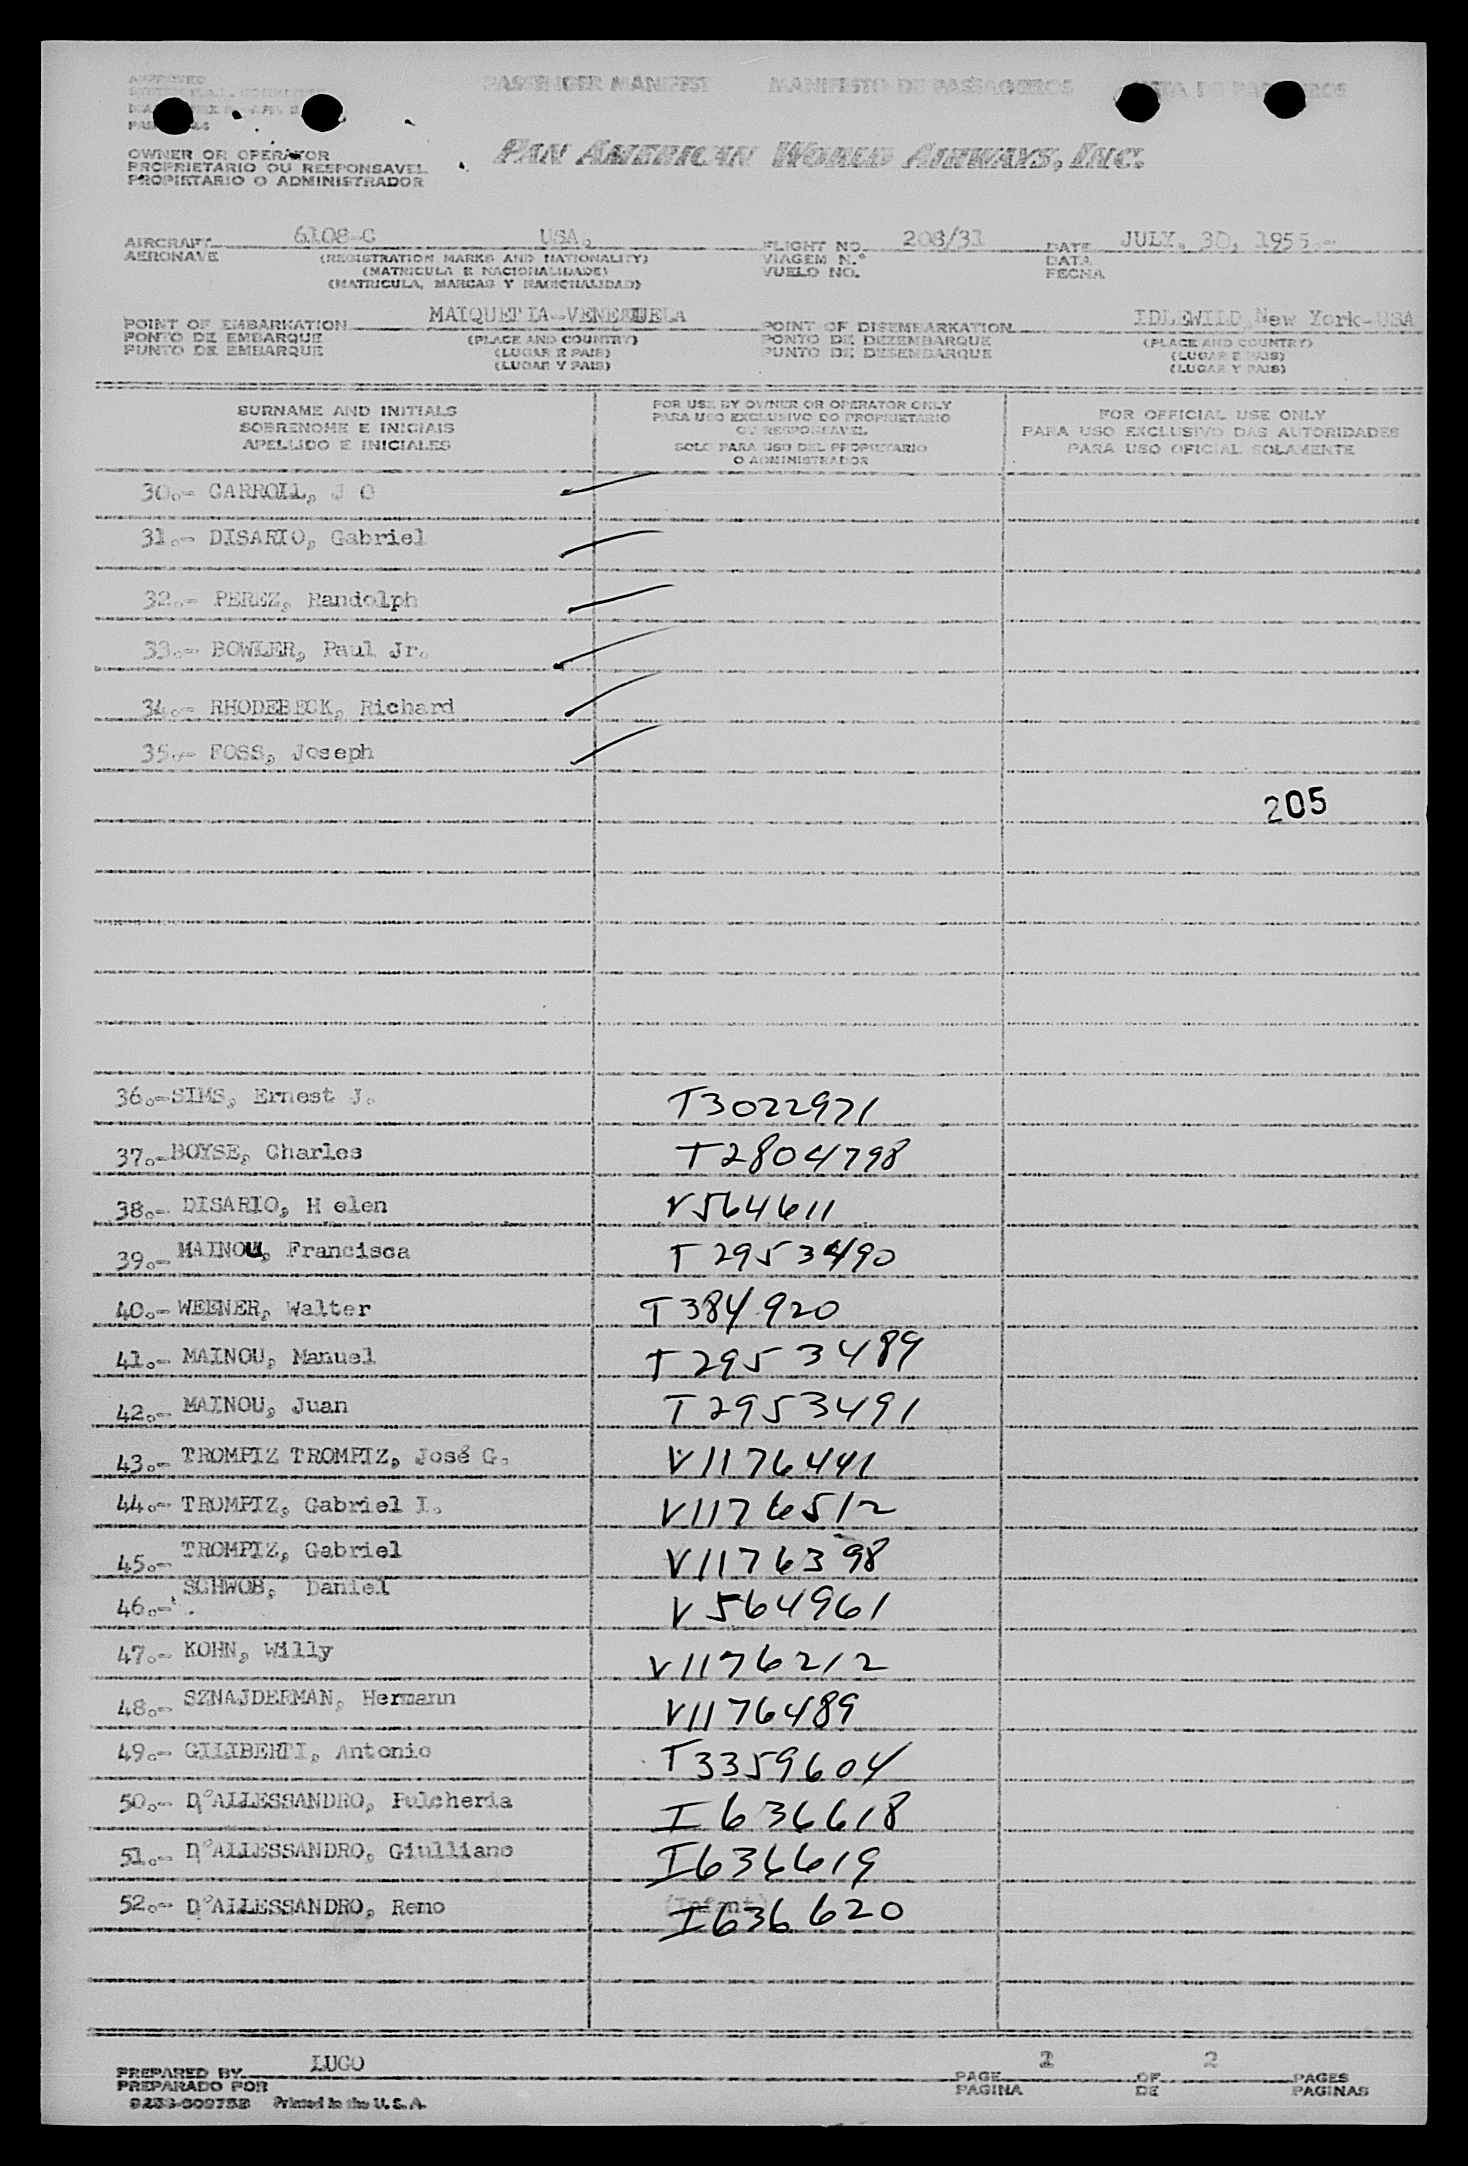 APPROVED
PASSENGER MANIFEST MANIFESTO DE PASSAGEIROS LISTA DE PASAJEROS
OWNER OR OPERATOR
PROPRIETARIO OU RESPONSAVEL
PROPIETARIO O ADMINISTRADOR
PAN AMERICAN WORLD AIRWAYS, INC.
AIRCRAFT 6108-C USA. FLIGHT NO. 208/31 DATE JULY. 30, 1955.-
AERONAVE (REGISTRATION MARKS AND NATIONALITY) VIAGEM N.º DATA
(MATRICULA E NACIONALIDADE) VUELO NO. FECHA
(MATRICULA, MARCAS Y NACIONALIDAD)
POINT OF EMBARKATION MAIQUETIA-VENEZUELA POINT OF DISEMBARKATION IDLEWILD, New York-USA
PONTO DE EMBARQUE (PLACE AND COUNTRY) PONTO DE DEZEMBARQUE (PLACE AND COUNTRY)
PUNTO DE EMBARQUE (LUGAR E PAIS) PUNTO DE DESEMBARQUE (LUGAR E PAIS)
(LUGAR Y PAIS) (LUGAR Y PAIS)
SURNAME AND INITIALS FOR USE BY OWNER OR OPERATOR ONLY FOR OFFICIAL USE ONLY
SOBRENOME E INICIAIS PARA USO EXCLUSIVO DO PROPRIETARIO OU RESPONSAVEL PARA USO EXCLUSIVO DAS AUTORIDADES
APELLIDO E INICIALES SOLO PARA USO DEL PROPIETARIO O ADMINISTRADOR PARA USO OFICIAL SOLAMENTE
30.- CARROLL, J O
31.- DISARIO, Gabriel
32.- PEREZ, Randolph
33.- BOWLER, Paul Jr.
34.- RHODEBECK, Richard
35.- FOSS, Joseph
205
36.-SIMS, Ernest J. T3022971
37.-BOYSE, Charles T2804798
38.- DISARIO, H elen V564611
39.- MAINOU, Francisca T2953490
40.- WEENER, Walter T384920
41.- MAINOU, Manuel T2953489
42.- MAINOU, Juan T2953491
43.- TROMPIZ TROMPIZ, José G. V1176441
44.- TROMPIZ, Gabriel I. V1176512
45.- TROMPIZ, Gabriel V1176398
46.- SCHWOB, Daniel V564961
47.- KOHN, Willy V1176212
48.- SZNAJDERMAN, Hermann V1176489
49.- GILIBERTI, Antonio T3359604
50.- D'ALLESSANDRO, Pulcheria I636618
51.- D'ALLESSANDRO, Giulliano I636619
52.- D'ALLESSANDRO, Remo (Infant) I636620
PREPARED BY LUGO PAGE 2 OF 2 PAGES
PREPARADO POR PAGINA DE PAGINAS
Printed in the U. S. A.